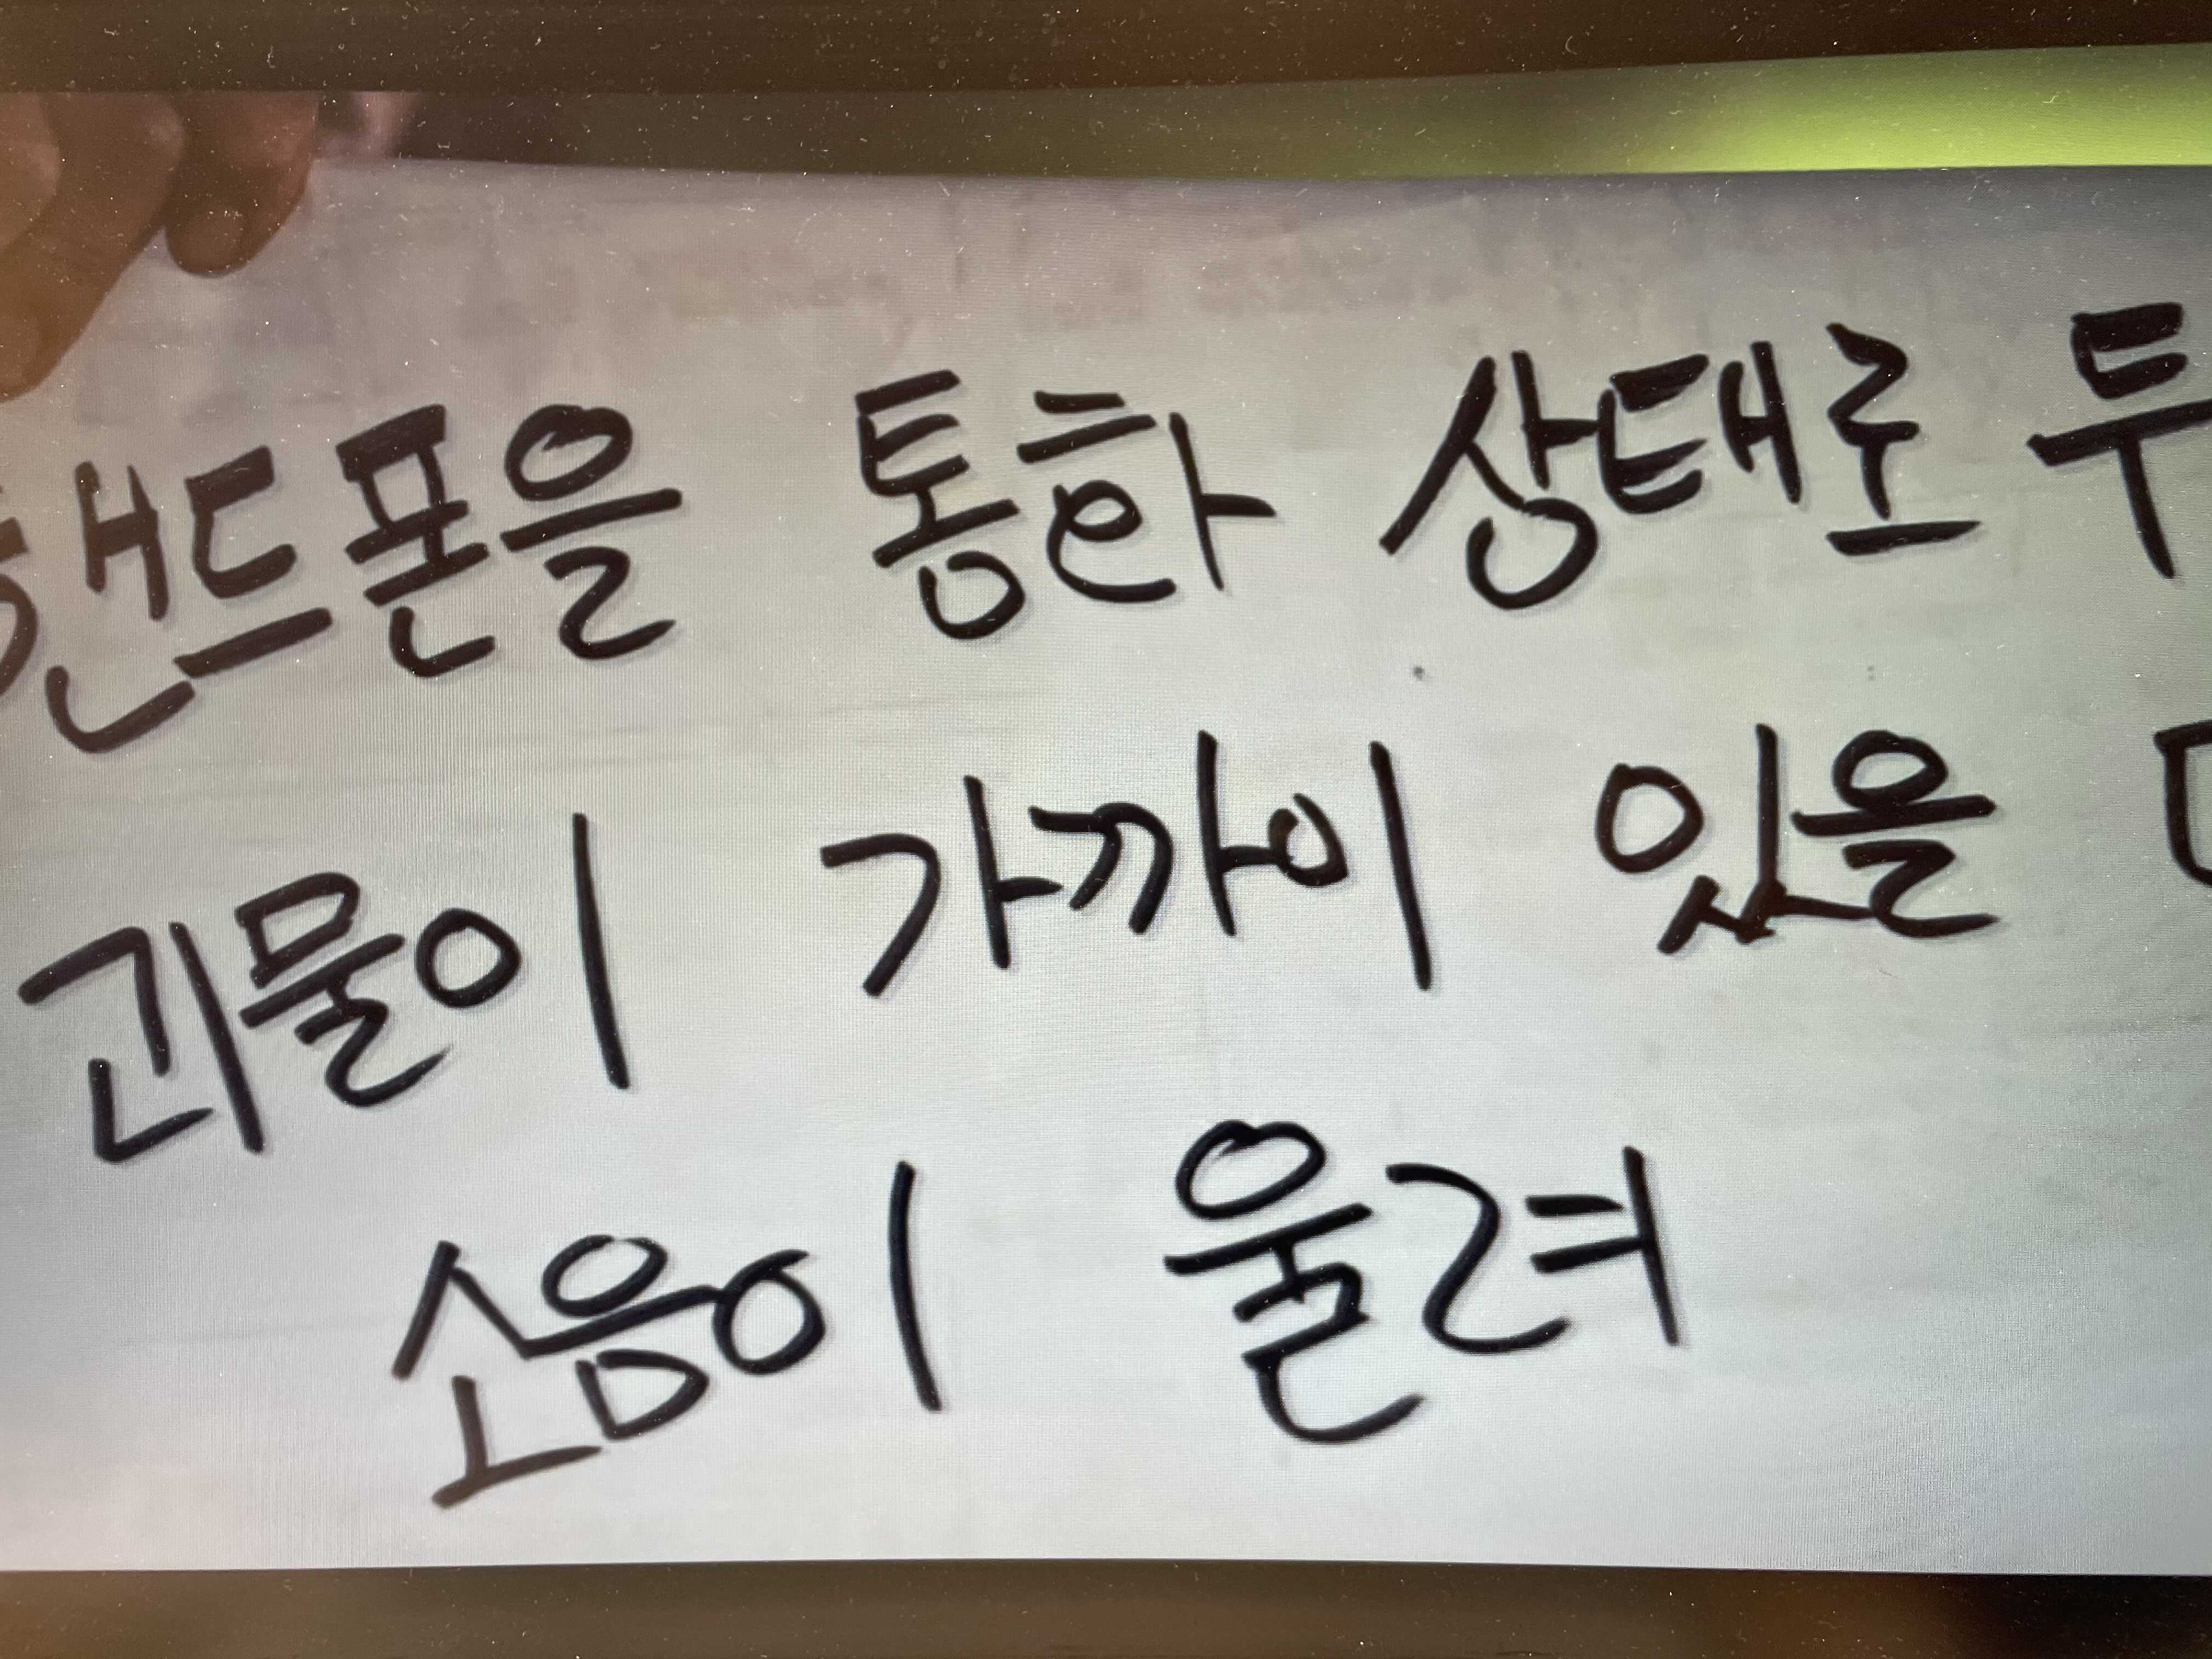 핸드폰을 통화 상태로 두
괴물이 가까이 있을
소음이 울려